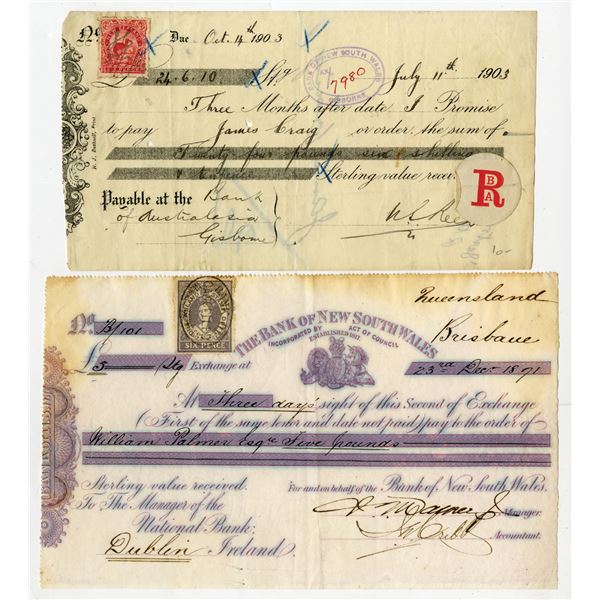 No
Due Oct. 14th 1903
£ 24.6.10 Stg
BANK OF NEW SOUTH WALES
7980
GISBORNE
July 11th 1903
Three Months after date I Promise
to pay James Craig or order, the sum of
Twenty four pounds six shillings
& pence Sterling value recei
Payable at the Bank
of Australasia
Gisborne
R
B
A
10-
Queensland
Brisbane
No B/101
SIX PENCE
THE BANK OF NEW SOUTH WALES
INCORPORATED BY ACT OF COUNCIL
ESTABLISHED 1817.
£5 Stg Exchange at
23rd Decr 1891
At Three day's sight of this Second of Exchange
(First of the same tenor and date not paid) pay to the order of
William Palmer Esqre Five pounds
Sterling value received.
For and on behalf of the Bank of New South Wales.
To The Manager of the
National Bank,
Manager.
Dublin Ireland.
Accountant.